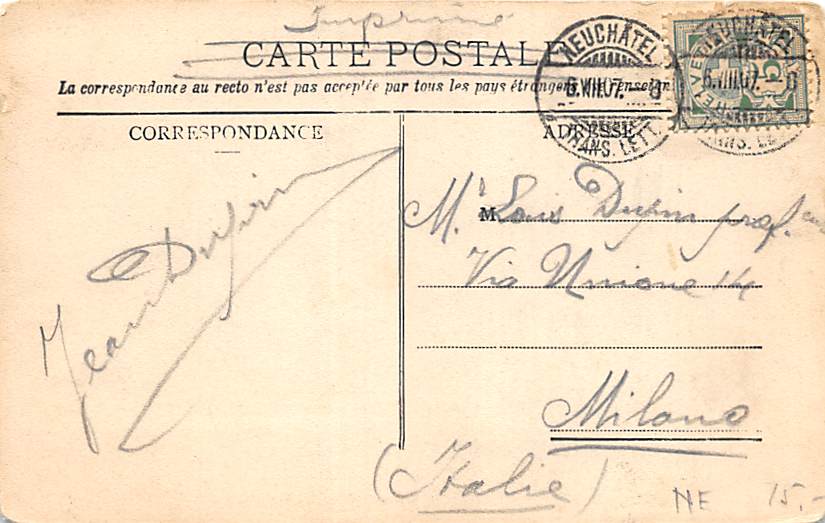 Imprimé
CARTE POSTALE
La correspondance au recto n'est pas acceptée par tous les pays étrangers
NEUCHÂTEL
6.VIII.07.
TRANS. LETT.
NEUCHÂTEL
6.VIII.07.
HELVETIA
CORRESPONDANCE
ADRESSE
Jean Dufin
M. M
Louis Dufin prof.
Via Unione 14
Milano
(Italie)
NE 15.-